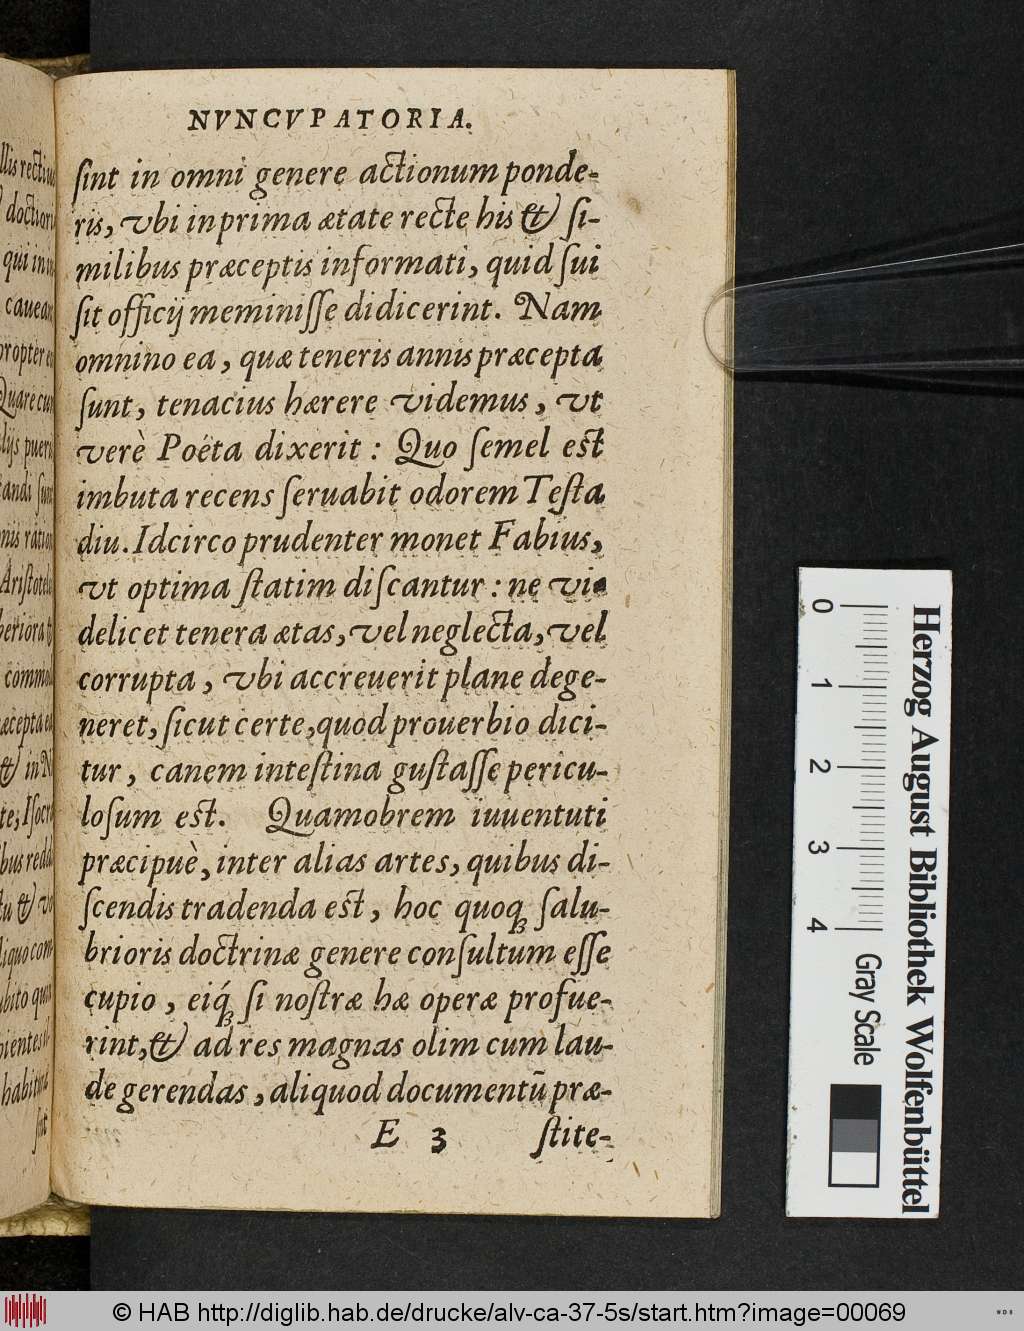 NVNCVPATORIA.
ſint in omni genere actionum ponde-
ris, vbi in prima ætate recte his & ſi-
milibus præceptis informati, quid ſui
ſit officij meminiſſe didicerint. Nam
omnino ea, quæ teneris annis præcepta
ſunt, tenacius hærere videmus, vt
verè Poëta dixerit: Quo ſemel eſt
imbuta recens ſeruabit odorem Teſta
diu. Idcirco prudenter monet Fabius,
vt optima ſtatim diſcantur: ne vi-
delicet tenera ætas, vel neglecta, vel
corrupta, vbi accreuerit plane dege-
neret, ſicut certe, quod prouerbio dici-
tur, canem inteſtina guſtaſſe pericu-
loſum eſt. Quamobrem iuuentuti
præcipuè, inter alias artes, quibus di-
ſcendis tradenda eſt, hoc quoqꝫ ſalu-
brioris doctrinæ genere conſultum eſſe
cupio, eiq́ꝫ ſi noſtræ hæ operæ profue-
rint, & ad res magnas olim cum lau-
de gerendas, aliquod documentũ præ-
E 3 ſtite-
llis rectius
doctiori
qui in
caueant
propter
Quare cum
lijs pueri
candi ſunt
nis ration
Ariſtotel
periora &
commod
æcepta ea
& in Ni
te, Iſocra
bus redd
tu & vo
liquo com
ubito qui
pientes
habitur
ſint
Herzog August Bibliothek Wolfenbüttel
0 1 2 3 4
Gray Scale
© HAB http://diglib.hab.de/drucke/alv-ca-37-5s/start.htm?image=00069